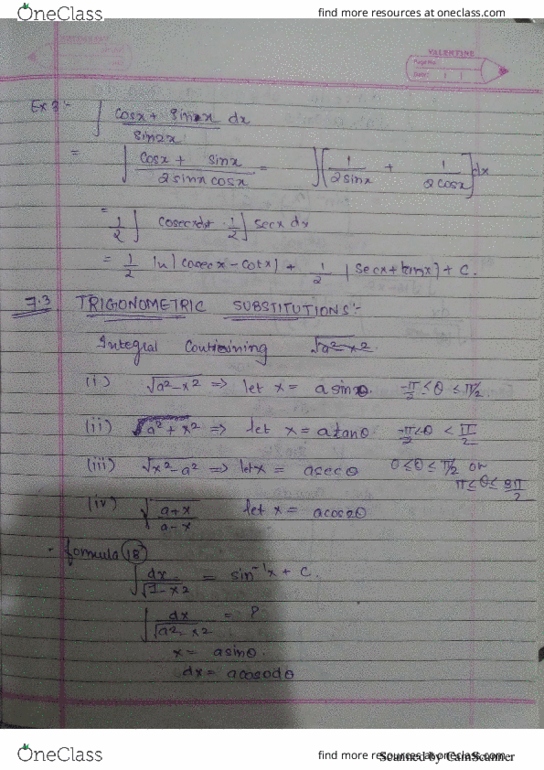 OneClass
find more resources at oneclass.com
VALENTINE
Ex 8:- ∫ cosx + sinx / sin2x dx
= ∫ cosx + sinx / 2sinx cosx = ∫[1/2sinx + 1/2cosx]dx
= 1/2 ∫ cosecxdx + 1/2 ∫ secx dx
= 1/2 ln|cosecx - cotx| + 1/2 |secx+tanx| + C.
7.3 TRIGONOMETRIC SUBSTITUTIONS:-
Integral Containing √a²-x²
(i) √a²-x² => let x = a sinθ. -π/2 ≤ θ ≤ π/2.
(ii) √a²+x² => let x = a tanθ. -π/2 < θ < π/2
(iii) √x²-a² => let x = a secθ 0 ≤ θ ≤ π/2 or
π ≤ θ ≤ 3π/2
(iv) √a+x/a-x let x = a cos2θ
formula 18
∫ dx/√1-x2 = sin⁻¹x + C.
∫ dx/√a2-x2 = ?
x = a sinθ.
dx = a cosθdθ
OneClass
find more resources at oneclass.com
Scanned by CamScanner